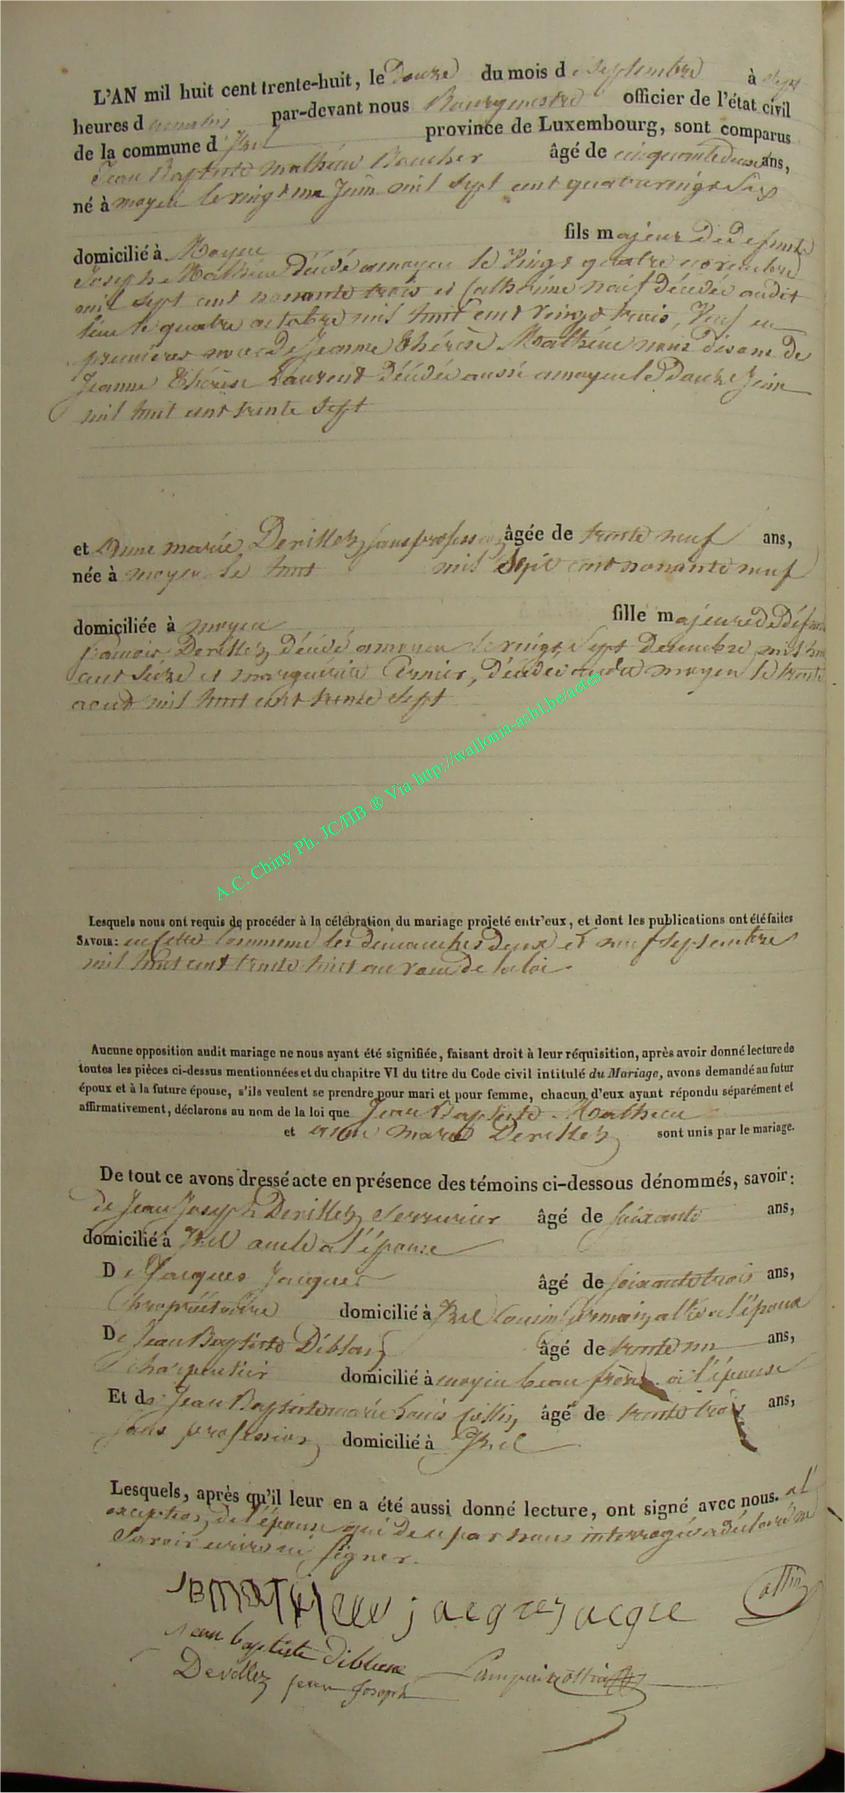 L'AN mil huit cent trente-huit, le Douze du mois de Septembre à sept
heures d par-devant nous Bourgmestre officier de l'état civil
de la commune d'Izel province de Luxembourg, sont comparus
Jean Baptiste Mathieu Boucher âgé de cinquante deux ans,
né à moyen le vingt un Juin mil sept cent quatrevingt Six
domicilié à Moyen fils majeur De defunts
Joseph Mathieu Décédé a moyen le Vingt quatre novembre
mil sept cent nonante trois et Catherine naif Décédée audit
lieu le quatre octobre mil huit cent Vingt trois, Veuf en
premières noces De Jeanne thérèse Mathieu nous disons de
Jeanne thérèse Laurent Décédée aussi a moyen le Douze Juin
mil huit cent trente sept
et Anne marie Devillez sans profession âgée de trente neuf ans,
née à moyen le huit mil Sept cent nonante neuf
domiciliée à moyen fille majeure De Défunts
francois Devillez Décédé a moyen le vingt Sept Decembre mil huit
cent Seize et marguerite Cernier, Décédée audit moyen le trente
aout mil huit cent trente sept
A.C. Chiny Ph. JC/HB ® Via http://wallonia-asbl.be/actes
Lesquels nous ont requis de procéder à la célébration du mariage projeté entr'eux, et dont les publications ont été faites
SAVOIR: en cette Commune les dimanches Deux et neuf Septembre
mil huit cent trente huit au vœu de la loi.
Aucune opposition audit mariage ne nous ayant été signifiée, faisant droit à leur réquisition, après avoir donné lecture de
toutes les pièces ci-dessus mentionnées et du chapitre VI du titre du Code civil intitulé du Mariage, avons demandé au futur
époux et à la future épouse, s'ils veulent se prendre pour mari et pour femme, chacun d'eux ayant répondu séparément et
affirmativement, déclarons au nom de la loi que Jean Baptiste Mathieu
et anne marie Devillez sont unis par le mariage.
De tout ce avons dressé acte en présence des témoins ci-dessous dénommés, savoir:
de Jean Joseph Devillez Serrurier âgé de soixante ans,
domicilié à Izel oncle a l'épouse
De Jacques Jacques âgé de soixante trois ans,
propriétaire domicilié à Izel Cousin Germain allié a l'époux
De Jean Baptiste Diblas âgé de trente un ans,
charpentier domicilié à moyen beau frère à l'épouse
Et de Jean Baptiste marie Louis Collin, âgé de trente trois ans,
sans profession, domicilié à Izel
Lesquels, après qu'il leur en a été aussi donné lecture, ont signé avec nous. a l'
exception de l'épouse qui De ce par nous interrogée a déclaré ne
Savoir écrire ni Signer.
JB MATHIEU jacques jacque
Jean baptiste
Devillez jean Joseph